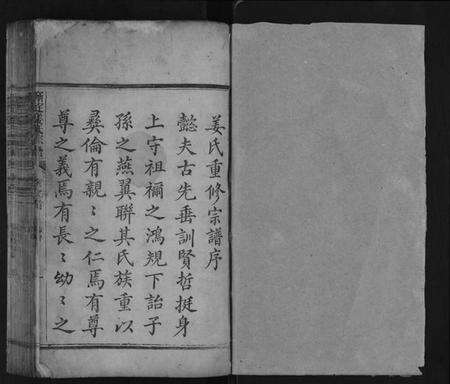 姜氏重修宗譜序
懿夫古先垂訓賢哲挺身
上守祖禰之鴻規下詒子
孫之燕翼聯其氏族重以
彝倫有親〻之仁焉有尊
尊之義焉有長〻幼〻之